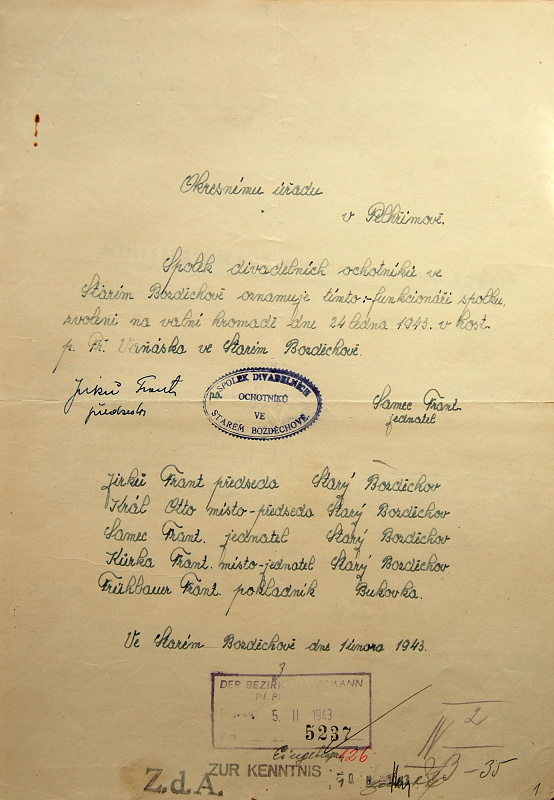 Okresnímu úřadu
v Pelhřimově.
Spolek divadelních ochotníků ve
Starém Bozděchově oznamuje tímto:-funkcionáři spolku,
zvoleni na valní hromadě dne 24 ledna 1943. v host.
p. Fr. Vaňáska ve Starém Bozděchově.
Jirků Frant
předseda
SPOLEK DIVADELNÍCH
OCHOTNÍKŮ
VE
STARÉM BOZDĚCHOVĚ
Samec Frant
jednatel
Jirků Frant předseda Starý Bozděchov
Král Otto místo-předseda Starý Bozděchov
Samec Frant. jednatel Starý Bozděchov
Kůrka Frant. místo-jednatel Starý Bozděchov
Frühbauer Frant. pokladník Bukovka.
Ve Starém Bozděchově dne 1 února 1943.
DER BEZIRKSHAUPTMANN
IN
5. II 1943
5237
426
IV 2
ZUR KENNTNIS
Z.d.A.
- 35
1